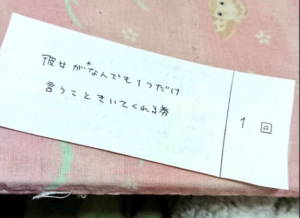 彼女がなんでも1つだけ
言うこときいてくれる券
1回